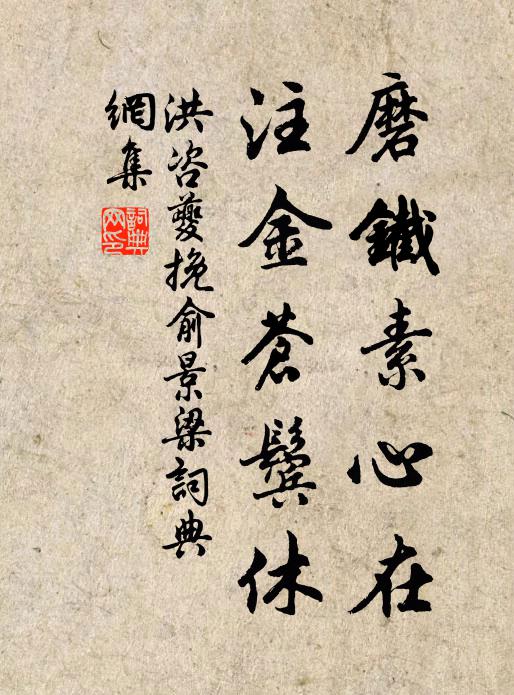 磨鐵素心在
注金蒼鬢休
洪咨夔挽俞景梁詞典
網集
詞典
网印